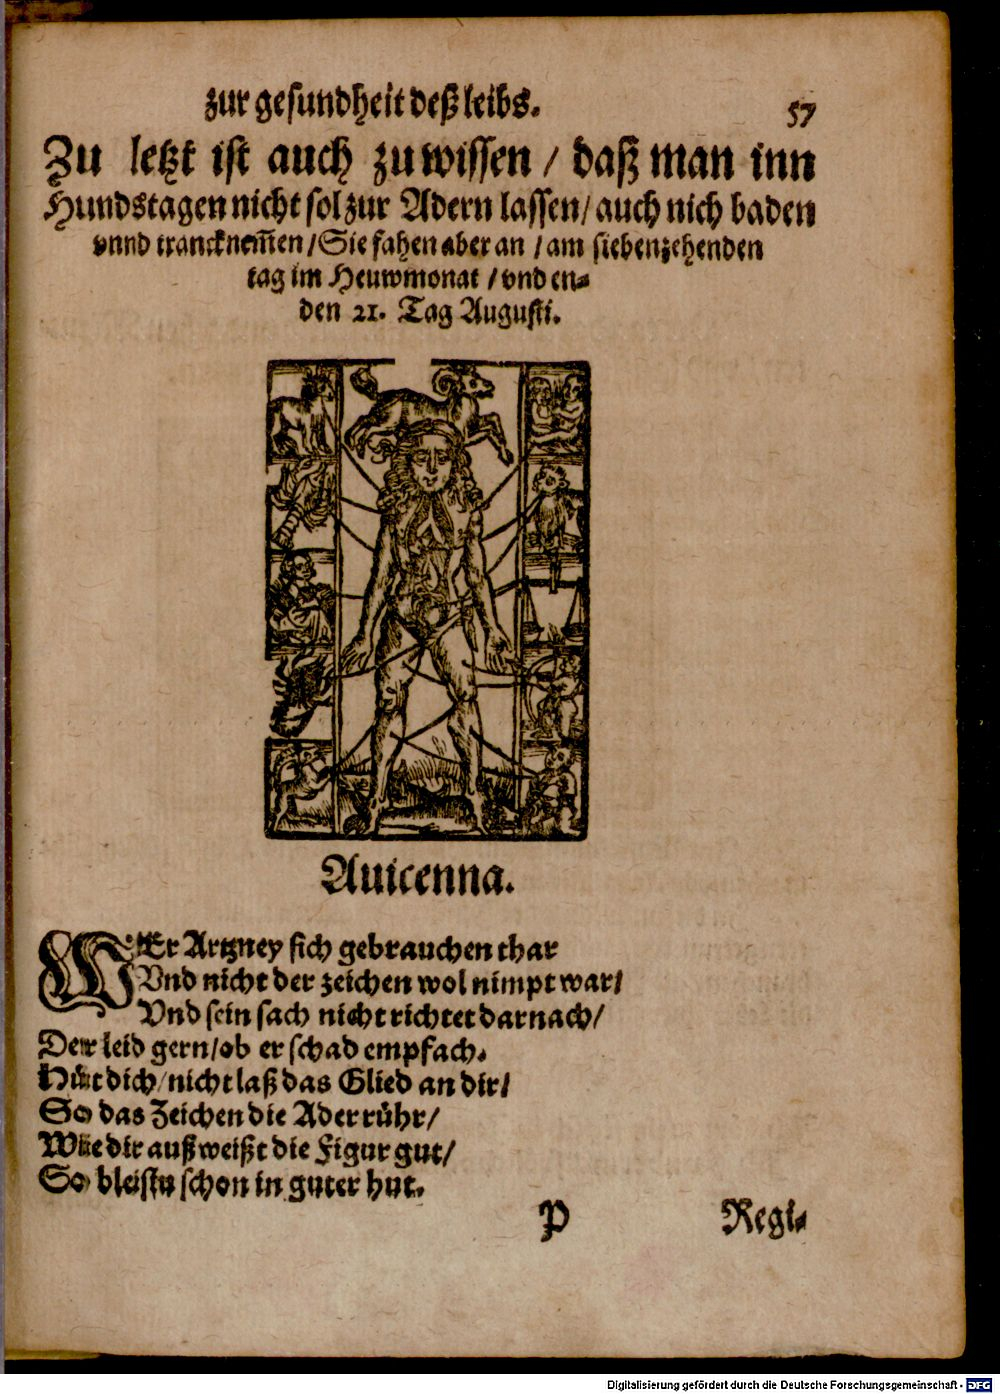 zur gesundheit deß leibs. 57
Zu letzt ist auch zu wissen / daß man inn
Hundstagen nicht sol zur Adern lassen / auch nich baden
vnnd tranck nem̃en / Sie fahen aber an / am siebenzehenden
tag im Heuwmonat / vnd en⸗
den 21. Tag Augusti.
Auicenna.
WEr Artzney sich gebrauchen thar
Vnd nicht der zeichen wol nimpt war /
Vnd sein sach nicht richtet darnach /
Der leid gern / ob er schad empfach.
Hüt dich / nicht laß das Glied an dir /
So das Zeichen die Ader rühr /
Wie dir außweißt die Figur gut /
So bleistu schon in guter hut.
P Regi⸗
Digitalisierung gefördert durch die Deutsche Forschungsgemeinschaft - DFG